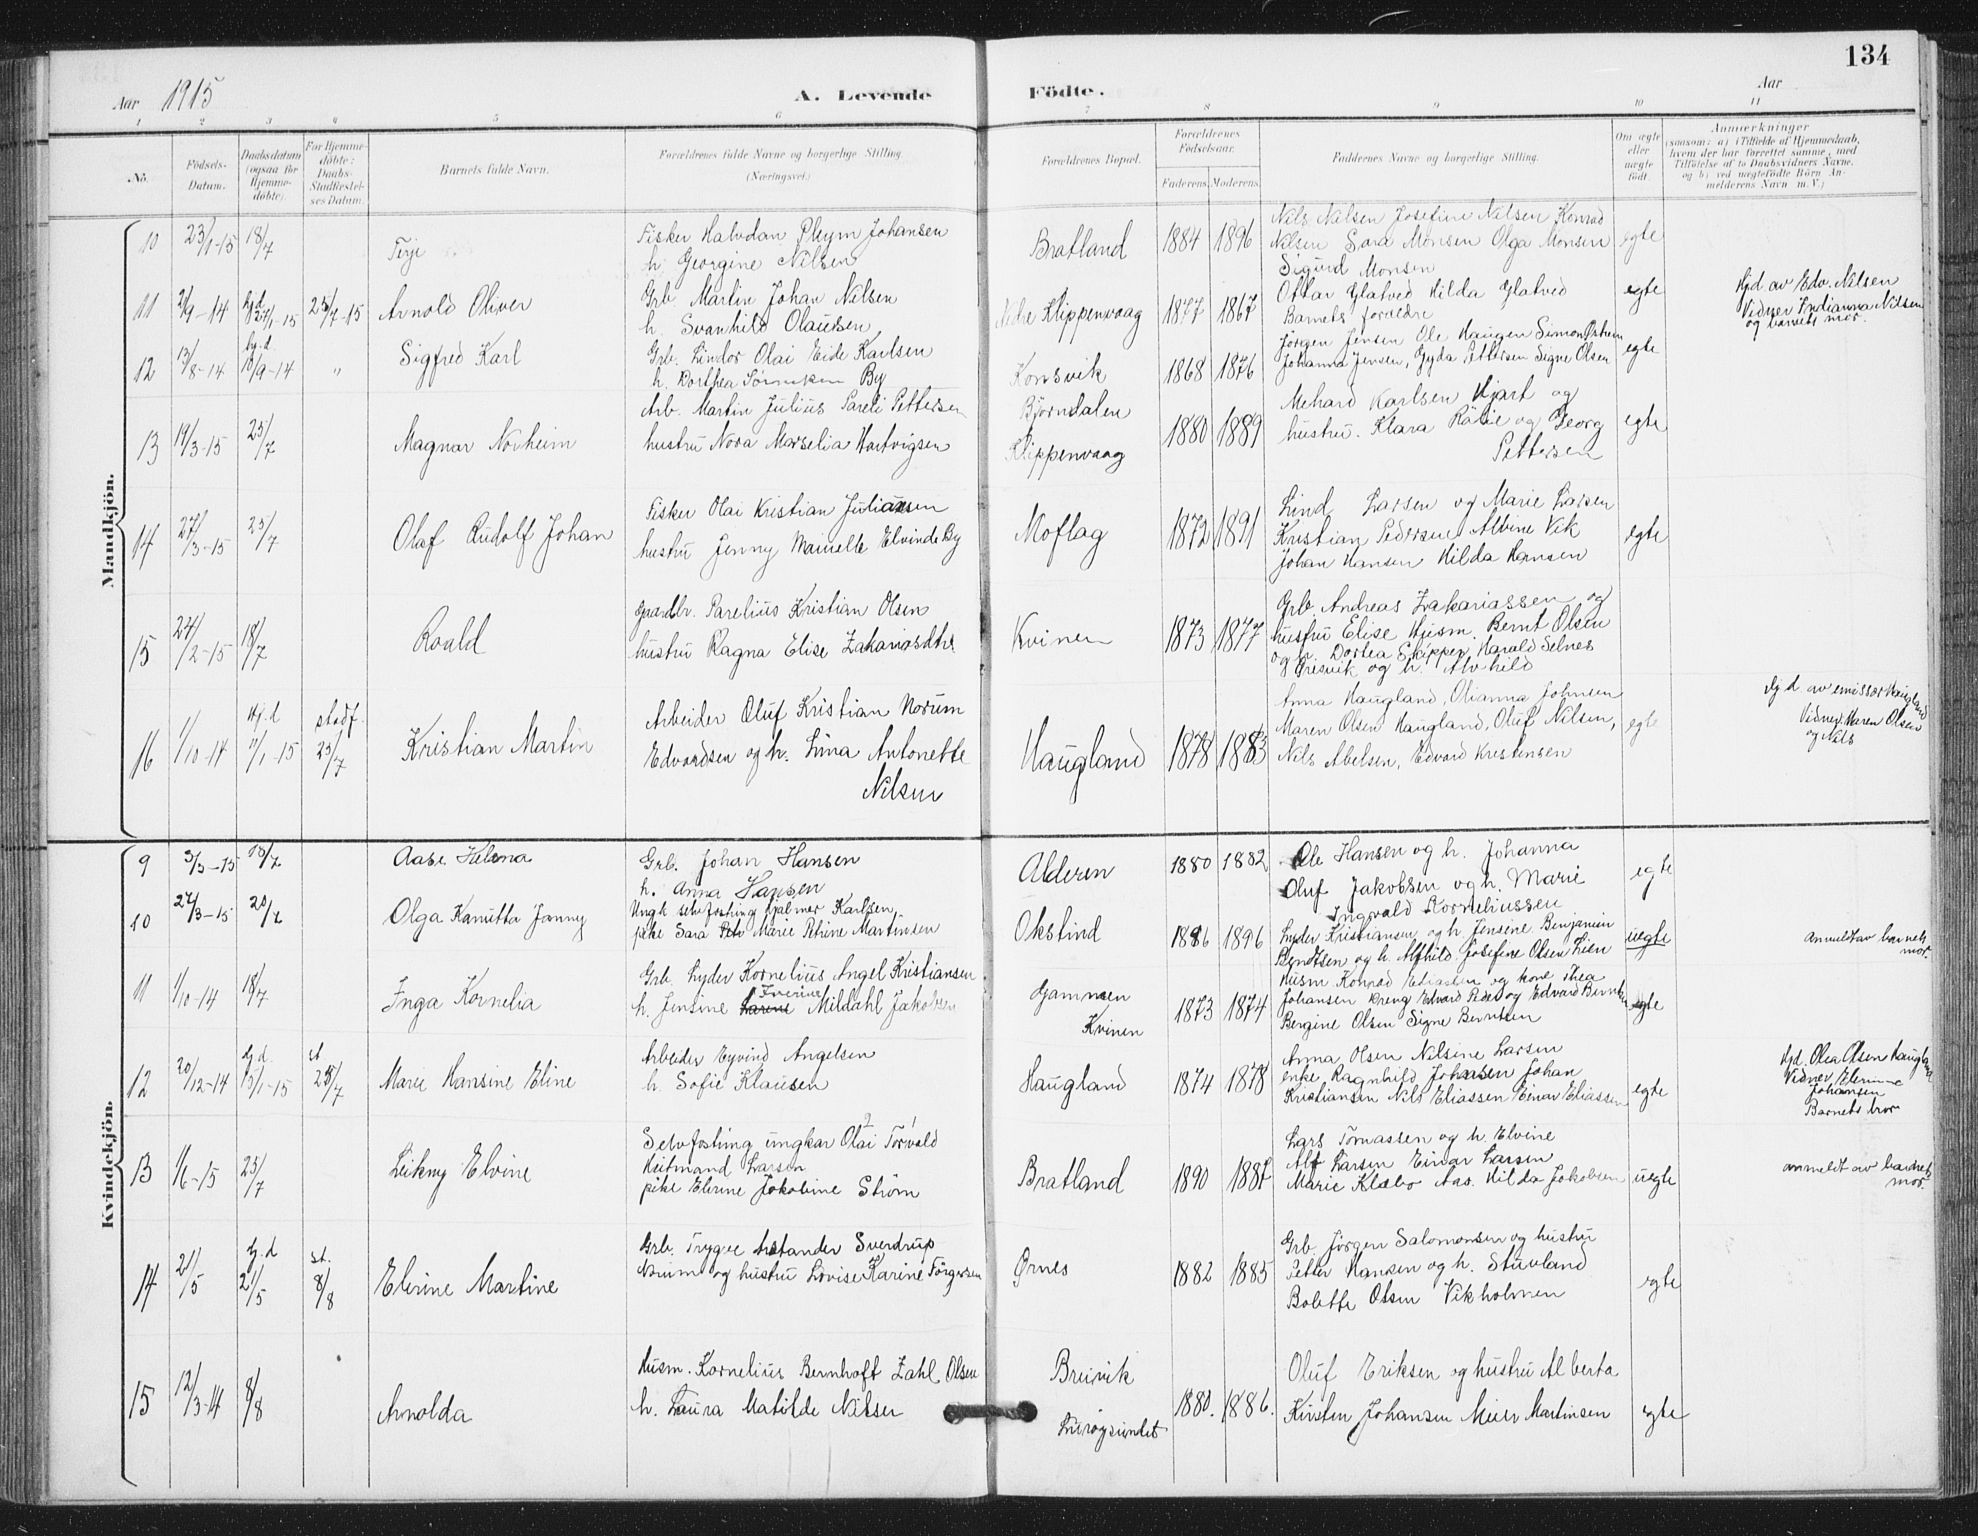 134
Aar 1915
A. Levende
Födte.
Aar
1 2 3 4 5 6
7 8 9 10 11
No.
Födsels-
Datum.
Daabsdatum
(ogsaa for
Hjemme-
döbte).
For Hjemme-
döbte:
Daabs-
Stadfæstel-
ses Datum.
Barnets fulde Navn.
Forældrenes fulde Navne og borgerlige Stilling
(Næringsvei.)
Forældrenes Bopæl.
Forældrenes
Födselsaar.
Faderens. Moderens.
Faddernes Navne og borgerlige Stilling.
Om ægte
eller
uægte
födt.
Anmærkninger
(saasom: a) i Tilfælde af Hjemmedaab,
hvem der har forrettet samme, med
Tilføielse af to Daabsvidners Navne,
og b) ved uægtefödte Börn An-
melderens Navn m. V.)
Mandkjön.
10 23/1-15 18/7
Terje
Fisker Halvdan Pleym Johansen
h. Georgine Nilsen
Bratland 1884 1896
Nils Nilsen Josefine Nilsen Konrad
Nilsen Sara Monsen Olga Monsen
Sigurd Monsen
egte
11 2/9-14 25/7-15
Arnold Oliver
Grb. Martin Johan Nilsen
h. Svanhild Olausen
Nedre Klippenvaag 1877 1867
Ottar Glatved Hilda Glatved
Barnets forældre
egte
Hjd av Edv. Nilsen
Vidner Indianna Nilsen
og barnets mor.
12 13/8-14 hj.d. 10/9-14 "
Sigfred Karl
Grb. Lindor Olai Eide Karlsen
h. Dorthea By
Konsvik 1868 1876
Jörgen Jensen Ole Haugen Simon
Johanna Jensen, Gyda Pettersen Signe Olsen
egte
13 19/3-15 25/7
Magnar Norheim
Arb. Martin Julius Pareli Pettersen
hustru Nora Marselia Hartvigsen
Björndalen
Klippenvaag
1880 1889
Mehard Karlsen Hjart og
hustru. Klara og Georg
Pettersen
egte
14 27/3-15 25/7
Olaf Rudolf Johan
Fisker Olai Kristian Juliansen
hustru Jenny Elvinde By
Moflag 1872 1891
Lind Larsen og Marie Larsen
Kristian Pedersen Albine Vik
Johan Hansen Hilda Hansen
egte
15 24/2-15 18/7
Roald
Gaardbr. Parelius Kristian Olsen
hustru Ragna Elise Zakariasdtr.
Kvinen 1873 1877
Grb. Andreas Zakariassen og
hustru Elise Husm. Bernt Olsen
og h. Dortea Skipper Harald Selnes
og h. Alvhild
16 1/10-14 Hj.d 17/1-15 stadf. 25/7
Kristian Martin
Arbeider Oluf Kristian Norum
Edvardsen og h. Lina Antonette
Nilsen
Haugland 1878 1883
Anna Haugland, Olianna Johnsen
Maren Olsen Haugland, Oluf Nilsen,
Nils Abelsen, Edvard Kristensen
egte
Hj.d. av emissær Haugland
Vidner Maren Olsen
og Nils
Kvindekjön.
9 3/3-15 18/7
Aase Helena
Grb. Johan Hansen
h. Anna Hansen
Alderen 1880 1882
Ole Hansen og h. Johanna
Oluf Jakobsen og h. Marie
Ingvald Korneliussen
egte
10 27/3-15
Olga Kamitta Janny
Ungk selvfostring Hjalmer Karlsen,
pike Sara Marie Petrine Martinsen
Okstind 1886 1896
Lyder Kristiansen og h. Jensine Benjamin
Berntsen og h. Alfhild. Josefine Olsen Lien
uegte
Anmeldt av barnets
mor.
11 1/10-14 18/7
Inga Kornelia
Grb. Lyder Kornelius Angel Kristiansen
h. Jensine Mildahl Jakobsen
Gammen
Kvinen
1873 1874
Husm Konrad Eliassen og kone Thea
Johansen Edvard og Edvard Berntsen
Bergine Olsen Signe Berntsen
egte
12 20/12-14 hj.d. st. 25/7
Marie Hansine Eline
Arbeider Eyvind Angelsen
h. Sofie Klausen
Haugland 1874 1878
Anna Olsen Nilsine Larsen
enke Ragnhild Johansen Johan
Kristiansen Nils Eliassen Einar Eliassen
egte
Hjd. Olea Olsen Haugland
Vidner Elerine
Johansen
Barnets bror
13 1/6-15 25/7
Leikny Elvine
Selvfostring ungkar Olai Torvald
Heitmand Larsen
pike Elerine Jakobine Ström
Bratland 1890 1887
Lars Tomassen og h. Elvine
Alf Larsen Einar Larsen
Marie Klæbo Aas. Hilda Jakobsen
uegte
anmeldt av barnets
mor.
14 21/5 hj.d 21/5 st. 8/8
Elerine Martine
Grb. Trygve Sverdrup
og hustru Lovise Karine
Ørnes 1882 1885
Grb. Jörgen Salomonsen og hustru
Petter Hansen og h. Stuvland
Bolette Olsen Vikholmen
egte
15 12/3-14 8/8
Arnolda
Husm. Kornelius Bernhoft Zahl Olsen
h. Laura Matilde Nilsen
Breivik
Lurøysundet
1880. 1886.
Oluf Eriksen og hustru Alberta
Kirsten Johansen Meier Martinsen
egte